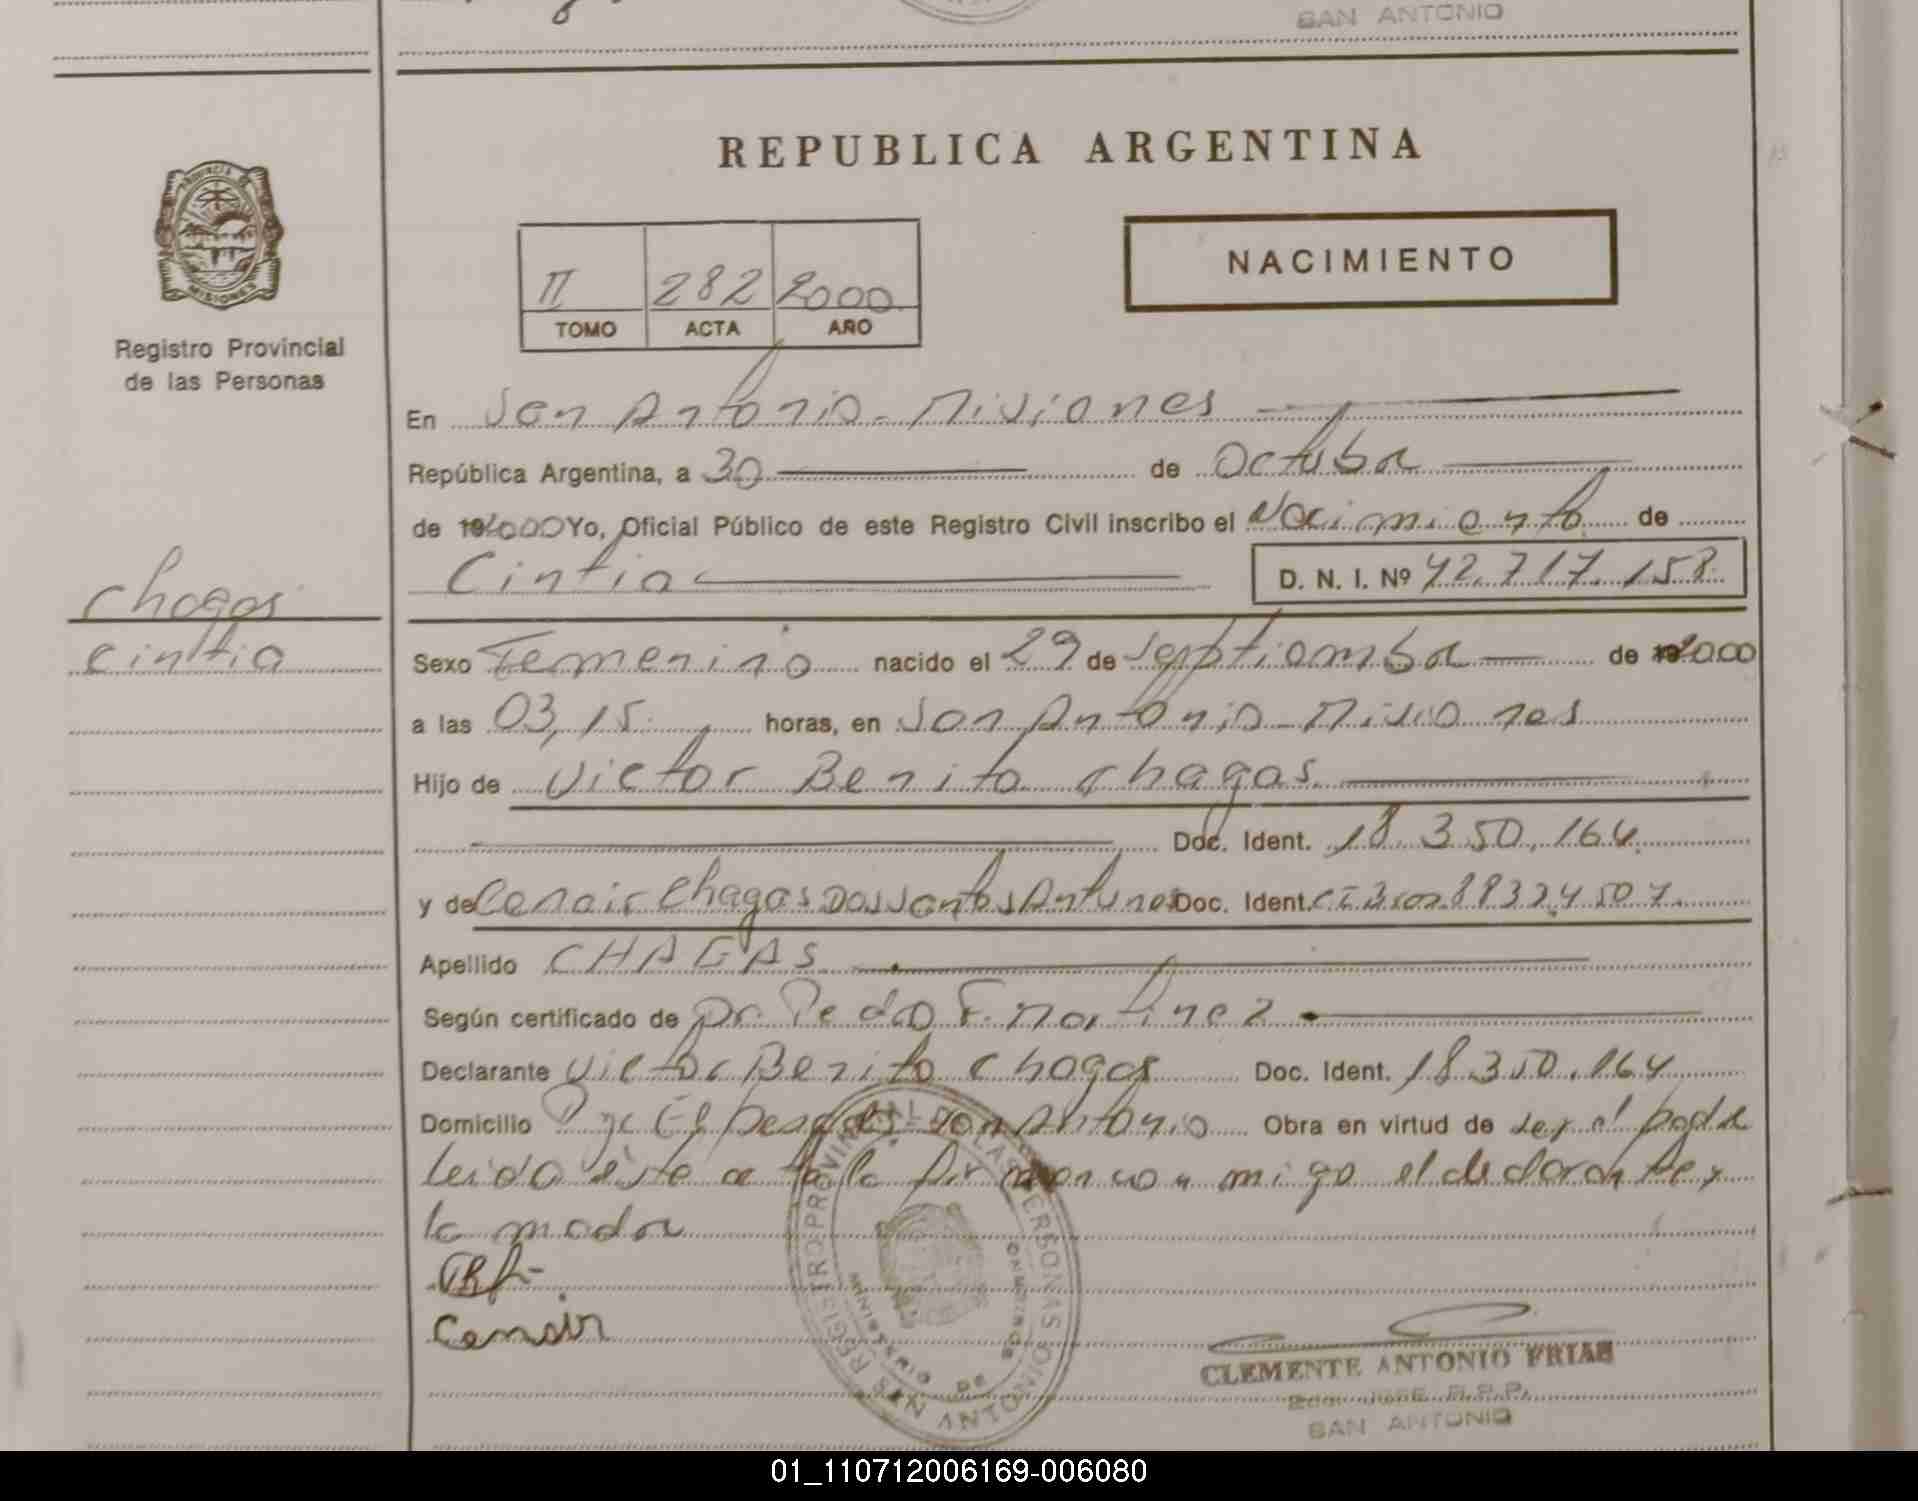 SAN ANTONIO
REPUBLICA ARGENTINA
PROVINCIA DE
MISIONES
Registro Provincial
de las Personas
NACIMIENTO
II 282 2000
TOMO ACTA AÑO
En San Antonio - Misiones
República Argentina, a 30 de Octubre
de 192000 Yo, Oficial Público de este Registro Civil inscribo el Nacimiento de
Cintia D. N. I. Nº 42.717.158
Chagas
Cintia
Sexo Femenino nacido el 29 de Septiembre de 192000
a las 03,15 horas, en San Antonio - Misiones
Hijo de Victor Benito Chagas
Doc. Ident. 18.350.164
y de Cenair Chagas Dos Santos Antunes Doc. Ident.
Apellido CHAGAS
Según certificado de Dr. Pedro F. Martinez
Declarante Victor Benito Chagas Doc. Ident. 18.350.164
Domicilio San Antonio Obra en virtud de ser el padre
leida este acta la firman conmigo el declarante y
la madre
Cenair
REGISTRO PROVINCIAL DE LAS PERSONAS
MINISTERIO DE GOBIERNO
SAN ANTONIO
CLEMENTE ANTONIO FRIAS
JEFE R.P.P.
SAN ANTONIO
01_110712006169-006080